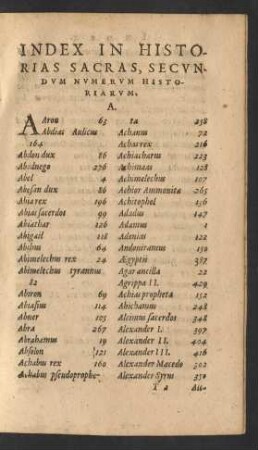 INDEX IN HISTO-
RIAS SACRAS, SECVN-
DVM NVMERVM HISTO-
RIARVM.
A.
Aaron 63
Abdias Aulicus
164
Abdon dux 86
Abednego 276
Abel 4
Abesan dux 86
Abia rex 196
Abias sacerdos 99
Abiathar 126
Abigail 118
Abihu 64
Abimelechus rex 24
Abimelechus tyrannus
82
Abiron 69
Abisaus 114
Abner 105
Abra 267
Abrahamus 19
Absolon 121
Achabus rex 160
Achabus pseudoprophe-
ta 258
Achanus 72
Achas rex 216
Achiacharus 223
Achimaas 128
Achimelechus 107
Achior Ammonita 265
Achitophel 156
Adadus 147
Adamus 1
Adonias 122
Andonitramus 150
Aegyptii 387
Agar ancilla 22
Agrippa II. 409
Achias propheta 152
Ahichamus 248
Alcimus sacerdos 348
Alexander I. 397
Alexander II. 404
Alexander III. 416
Alexander Macedo 302
Alexander Syrus 350
I 2 Au-